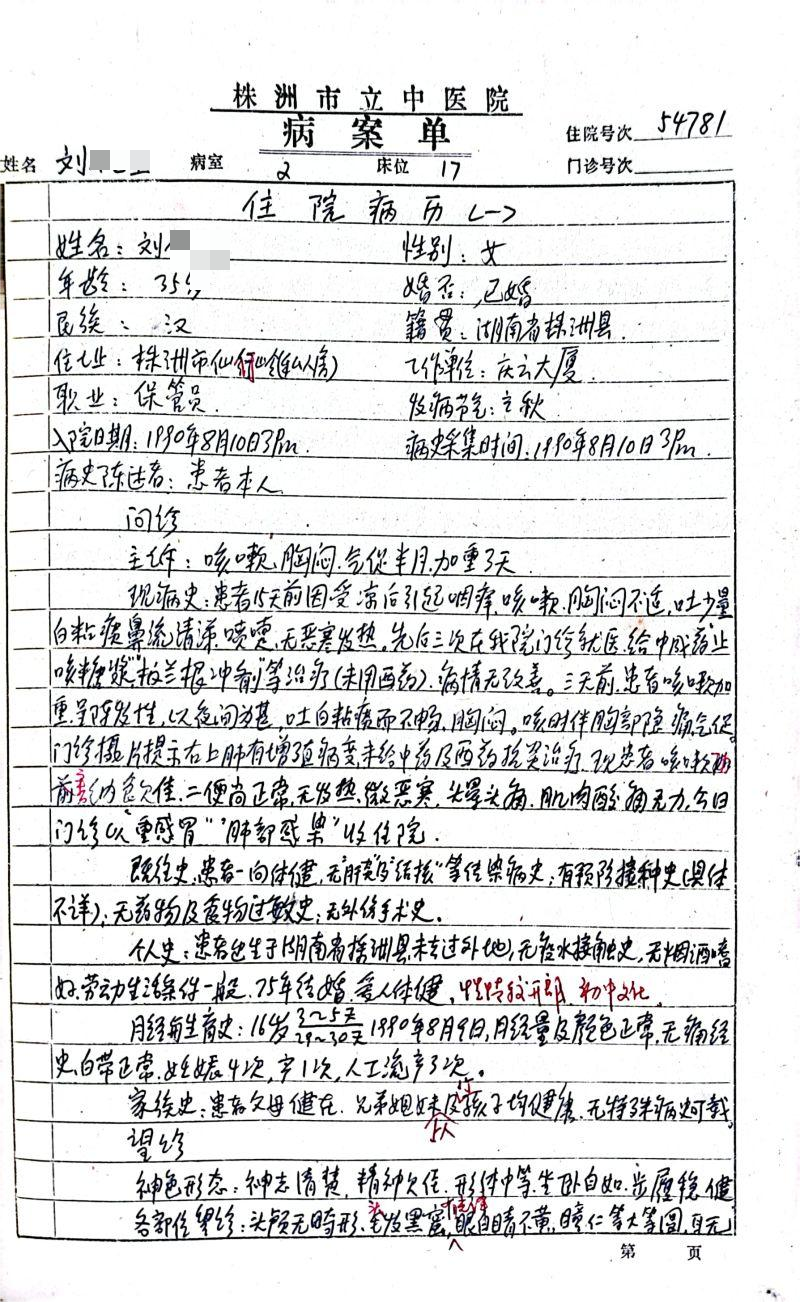 株洲市立中医院
病案单
住院号次 54781
姓名 刘 病室 2 床位 17 门诊号次
住院病历(一)
姓名：刘 性别：女
年龄：35岁 婚否：已婚
民族：汉 籍贯：湖南省株洲县
住址：株洲市仙 工作单位：庆云大厦
职业：保管员 发病节气：立秋
入院日期：1990年8月10日3Pm. 病史采集时间：1990年8月10日3Pm.
病史陈述者：患者本人
问诊
主诉：咳嗽、胸闷、气促半月，加重3天
现病史：患者15天前因受凉后引起咽痒，咳嗽，胸闷不适，吐少量
白粘痰，鼻流清涕，喷嚏，无恶寒发热。先后三次在我院门诊就医，给中成药"止
咳糖浆""板兰根冲剂"等治疗(未用西药)，病情无改善。三天前，患者咳嗽加
重，呈阵发性，以夜间为甚，吐白粘痰而不畅，胸闷。咳时伴胸部隐痛，气促。
门诊摄片提示右上肺有增殖病变，未给中药及西药抗炎治疗，现患者咳嗽
前 纳食欠佳，二便尚正常，无发热，微恶寒，头晕头痛，肌肉酸痛无力，今日
门诊以"重感冒""肺部感染"收住院.
既往史：患者一向体健，无"肝炎"及"结核"等传染病史；有预防接种史(具体
不详)；无药物及食物过敏史；无外伤手术史。
个人史：患者出生于湖南省株洲县，未去过外地，无疫水接触史，无烟酒嗜
好，劳动生活条件一般，75年结婚，爱人体健，性情较开朗，初中文化.
月经生育史：16岁 3~5天/29~30天 1990年8月9日，月经量及颜色正常，无痛经
史，白带正常，妊娠4次，产1次，人工流产3次。
家族史：患者父母健在，兄弟姐妹 及 孩子均健康，无特殊病史可载。
望诊
神色形态：神志清楚，精神欠佳，形体中等，坐卧自如，步履稳健
各部位望诊：头颅无畸形，发黑密，眼白睛不黄，瞳仁等大等圆，耳无
第 页